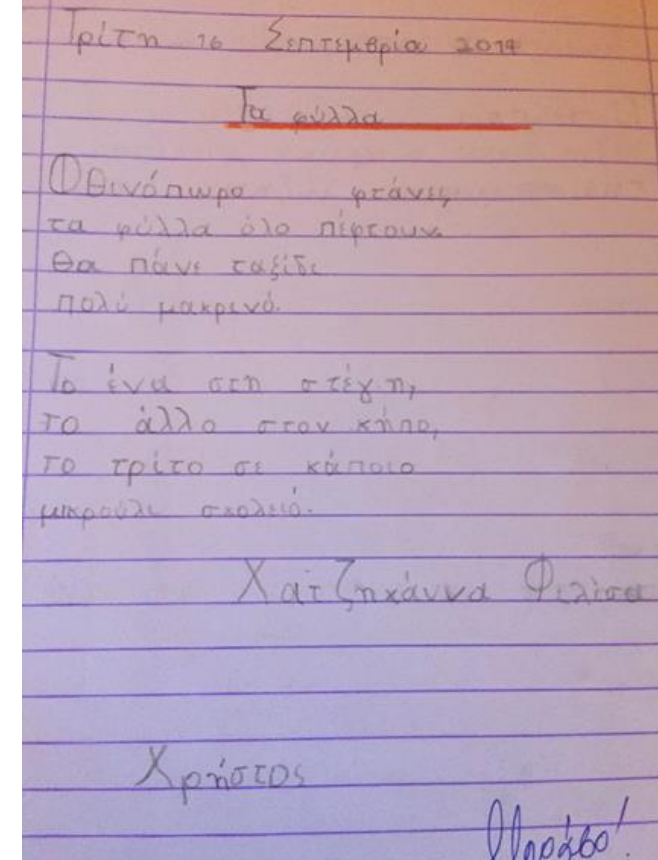 Τρίτη 16 Σεπτεμβρίου 2014
Τα φύλλα
Φθινόπωρο φτάνει,
τα φύλλα όλο πέφτουν.
Θα πάνε ταξίδι
πολύ μακρινό.
Το ένα στη στέγη,
το άλλο στον κήπο,
το τρίτο σε κάποιο
μικρούλι σχολειό.
Χατζηχάννα Φιλίσα
Χρήστος
Μπράβο!